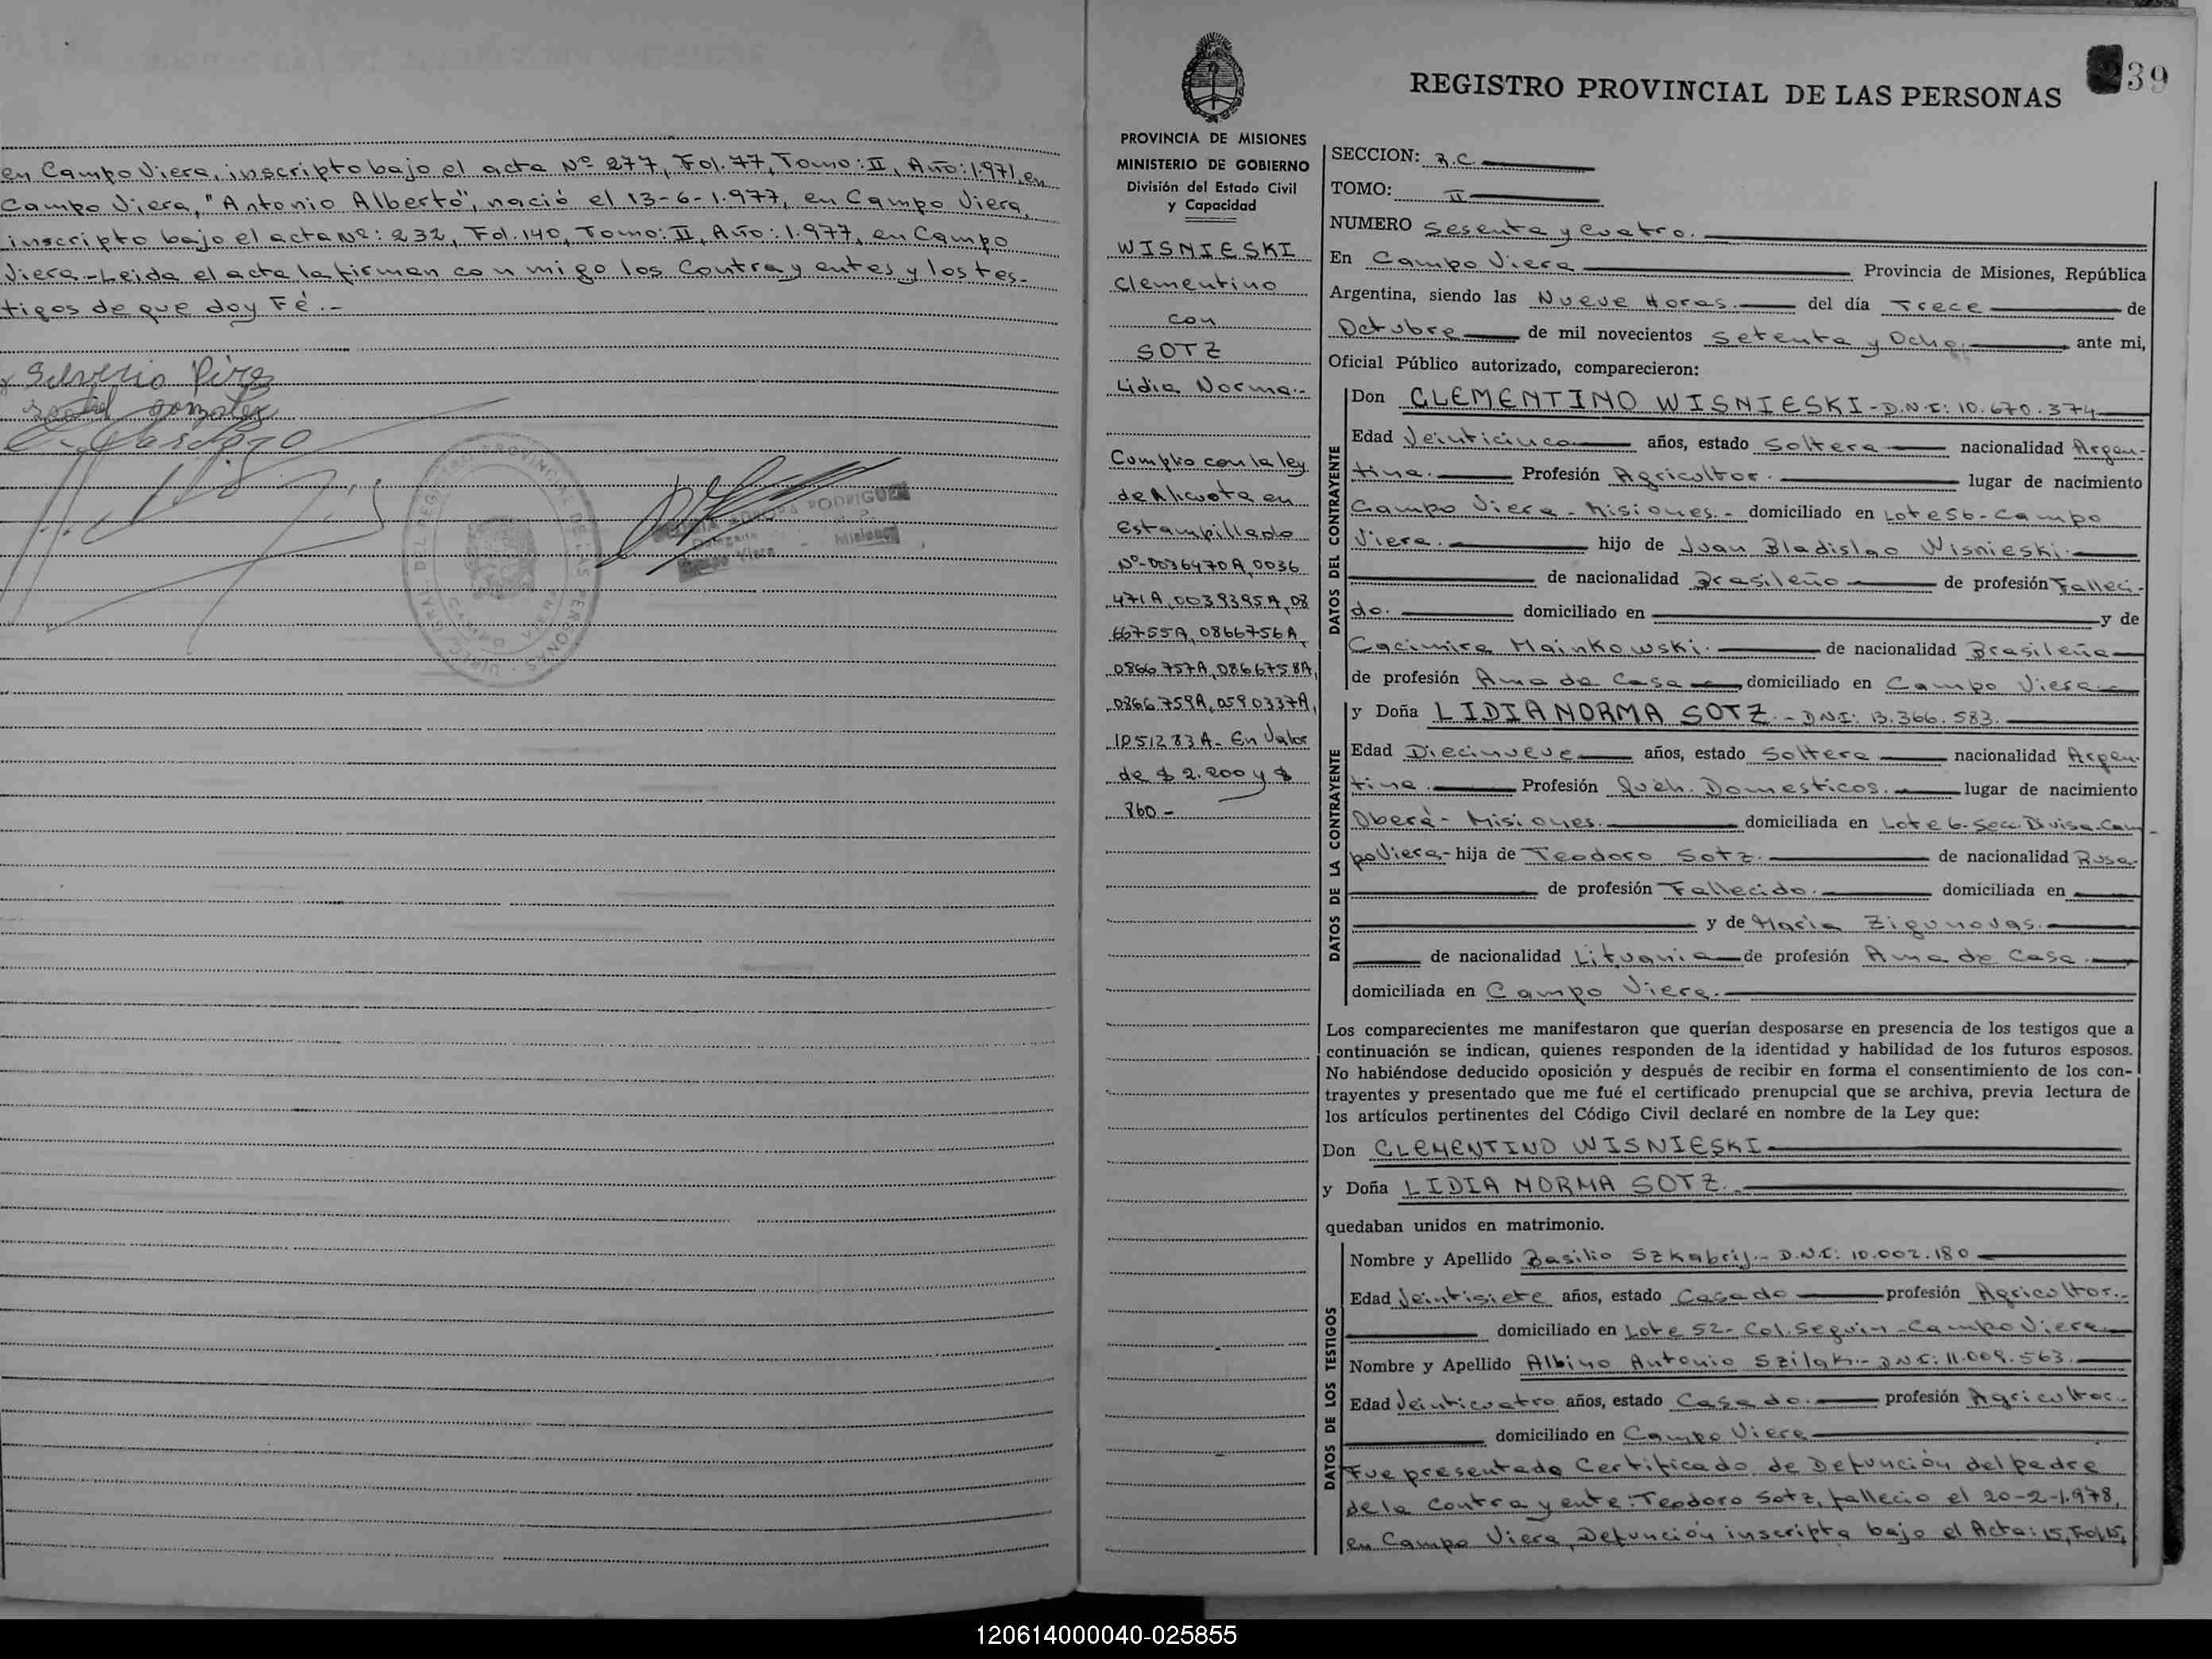 en Campo Viera, inscripto bajo el acta Nº 277, Fol. 77, Tomo: II, Año: 1.971, en
Campo Viera, "Antonio Alberto", nació el 13-6-1.977, en Campo Viera,
inscripto bajo el acta Nº: 232, Fol. 140, Tomo: II, Año: 1.977, en Campo
Viera.-Leida el acta la firman con migo los Contrayentes y los tes-
tigos de que doy Fé.-
Silverio Pérez
gonzalez
RODRIGUEZ
Campo Viera - Misiones
39
REGISTRO PROVINCIAL DE LAS PERSONAS
PROVINCIA DE MISIONES
MINISTERIO DE GOBIERNO
División del Estado Civil
y Capacidad
WISNIESKI
Clementino
con
SOTZ
Lidia Norma.-
Cumplio con la ley
de Alicuota en
Estampillado
Nº-0036470A, 0036
471A, 0039395A, 08
66755A, 0866756A,
0866757A, 0866758A,
0866759A, 0590337A,
1051283A- En Valor
de $ 2.200 y $
860-
SECCION: R.C.
TOMO: II
NUMERO Sesenta y Cuatro.
En Campo Viera Provincia de Misiones, República
Argentina, siendo las Nueve Horas. del día Trece de
Octubre de mil novecientos Setenta y Ocho. ante mi,
Oficial Público autorizado, comparecieron:
DATOS DEL CONTRAYENTE
Don CLEMENTINO WISNIESKI - D.N.I: 10.670.374
Edad Veinticinco años, estado Soltero nacionalidad Argen-
tina. Profesión Agricultor. lugar de nacimiento
Campo Viera - Misiones.- domiciliado en Lote 56-Campo
Viera. hijo de Juan Bladislao Wisnieski.
de nacionalidad Brasileño de profesión Falleci-
do. domiciliado en y de
Cacimira Mainkowski. de nacionalidad Brasileña
de profesión Ama de Casa domiciliado en Campo Viera
DATOS DE LA CONTRAYENTE
y Doña LIDIA NORMA SOTZ.- DNI: 13.366.583.
Edad Diecinueve años, estado Soltera nacionalidad Argen-
tina. Profesión Queh. Domesticos. lugar de nacimiento
Oberá - Misiones. domiciliada en Lote 6-Secc. Divisa-Cam
po Viera- hija de Teodoro Sotz. de nacionalidad Rusa-
de profesión Fallecido. domiciliada en
y de María Zigunovas.
de nacionalidad Lituania de profesión Ama de Casa.
domiciliada en Campo Viera.
Los comparecientes me manifestaron que querían desposarse en presencia de los testigos que a
continuación se indican, quienes responden de la identidad y habilidad de los futuros esposos.
No habiéndose deducido oposición y después de recibir en forma el consentimiento de los con-
trayentes y presentado que me fué el certificado prenupcial que se archiva, previa lectura de
los artículos pertinentes del Código Civil declaré en nombre de la Ley que:
Don CLEMENTINO WISNIESKI
y Doña LIDIA NORMA SOTZ.
quedaban unidos en matrimonio.
DATOS DE LOS TESTIGOS
Nombre y Apellido Basilio Szkabrij.- D.N.I: 10.002.180
Edad Veintisiete años, estado Casado profesión Agricultor.-
domiciliado en Lote 52- Col. Seguin - Campo Viera
Nombre y Apellido Albino Antonio Szilak.- DNI: 11.009.563.
Edad Veinticuatro años, estado Casado. profesión Agricultor.
domiciliado en Campo Viera
Fue presentado Certificado de Defunción del padre
de la Contrayente: Teodoro Sotz, fallecio el 20-2-1.978,
en Campo Viera, Defunción inscripta bajo el Acta: 15, Fol 15,
120614000040-025855